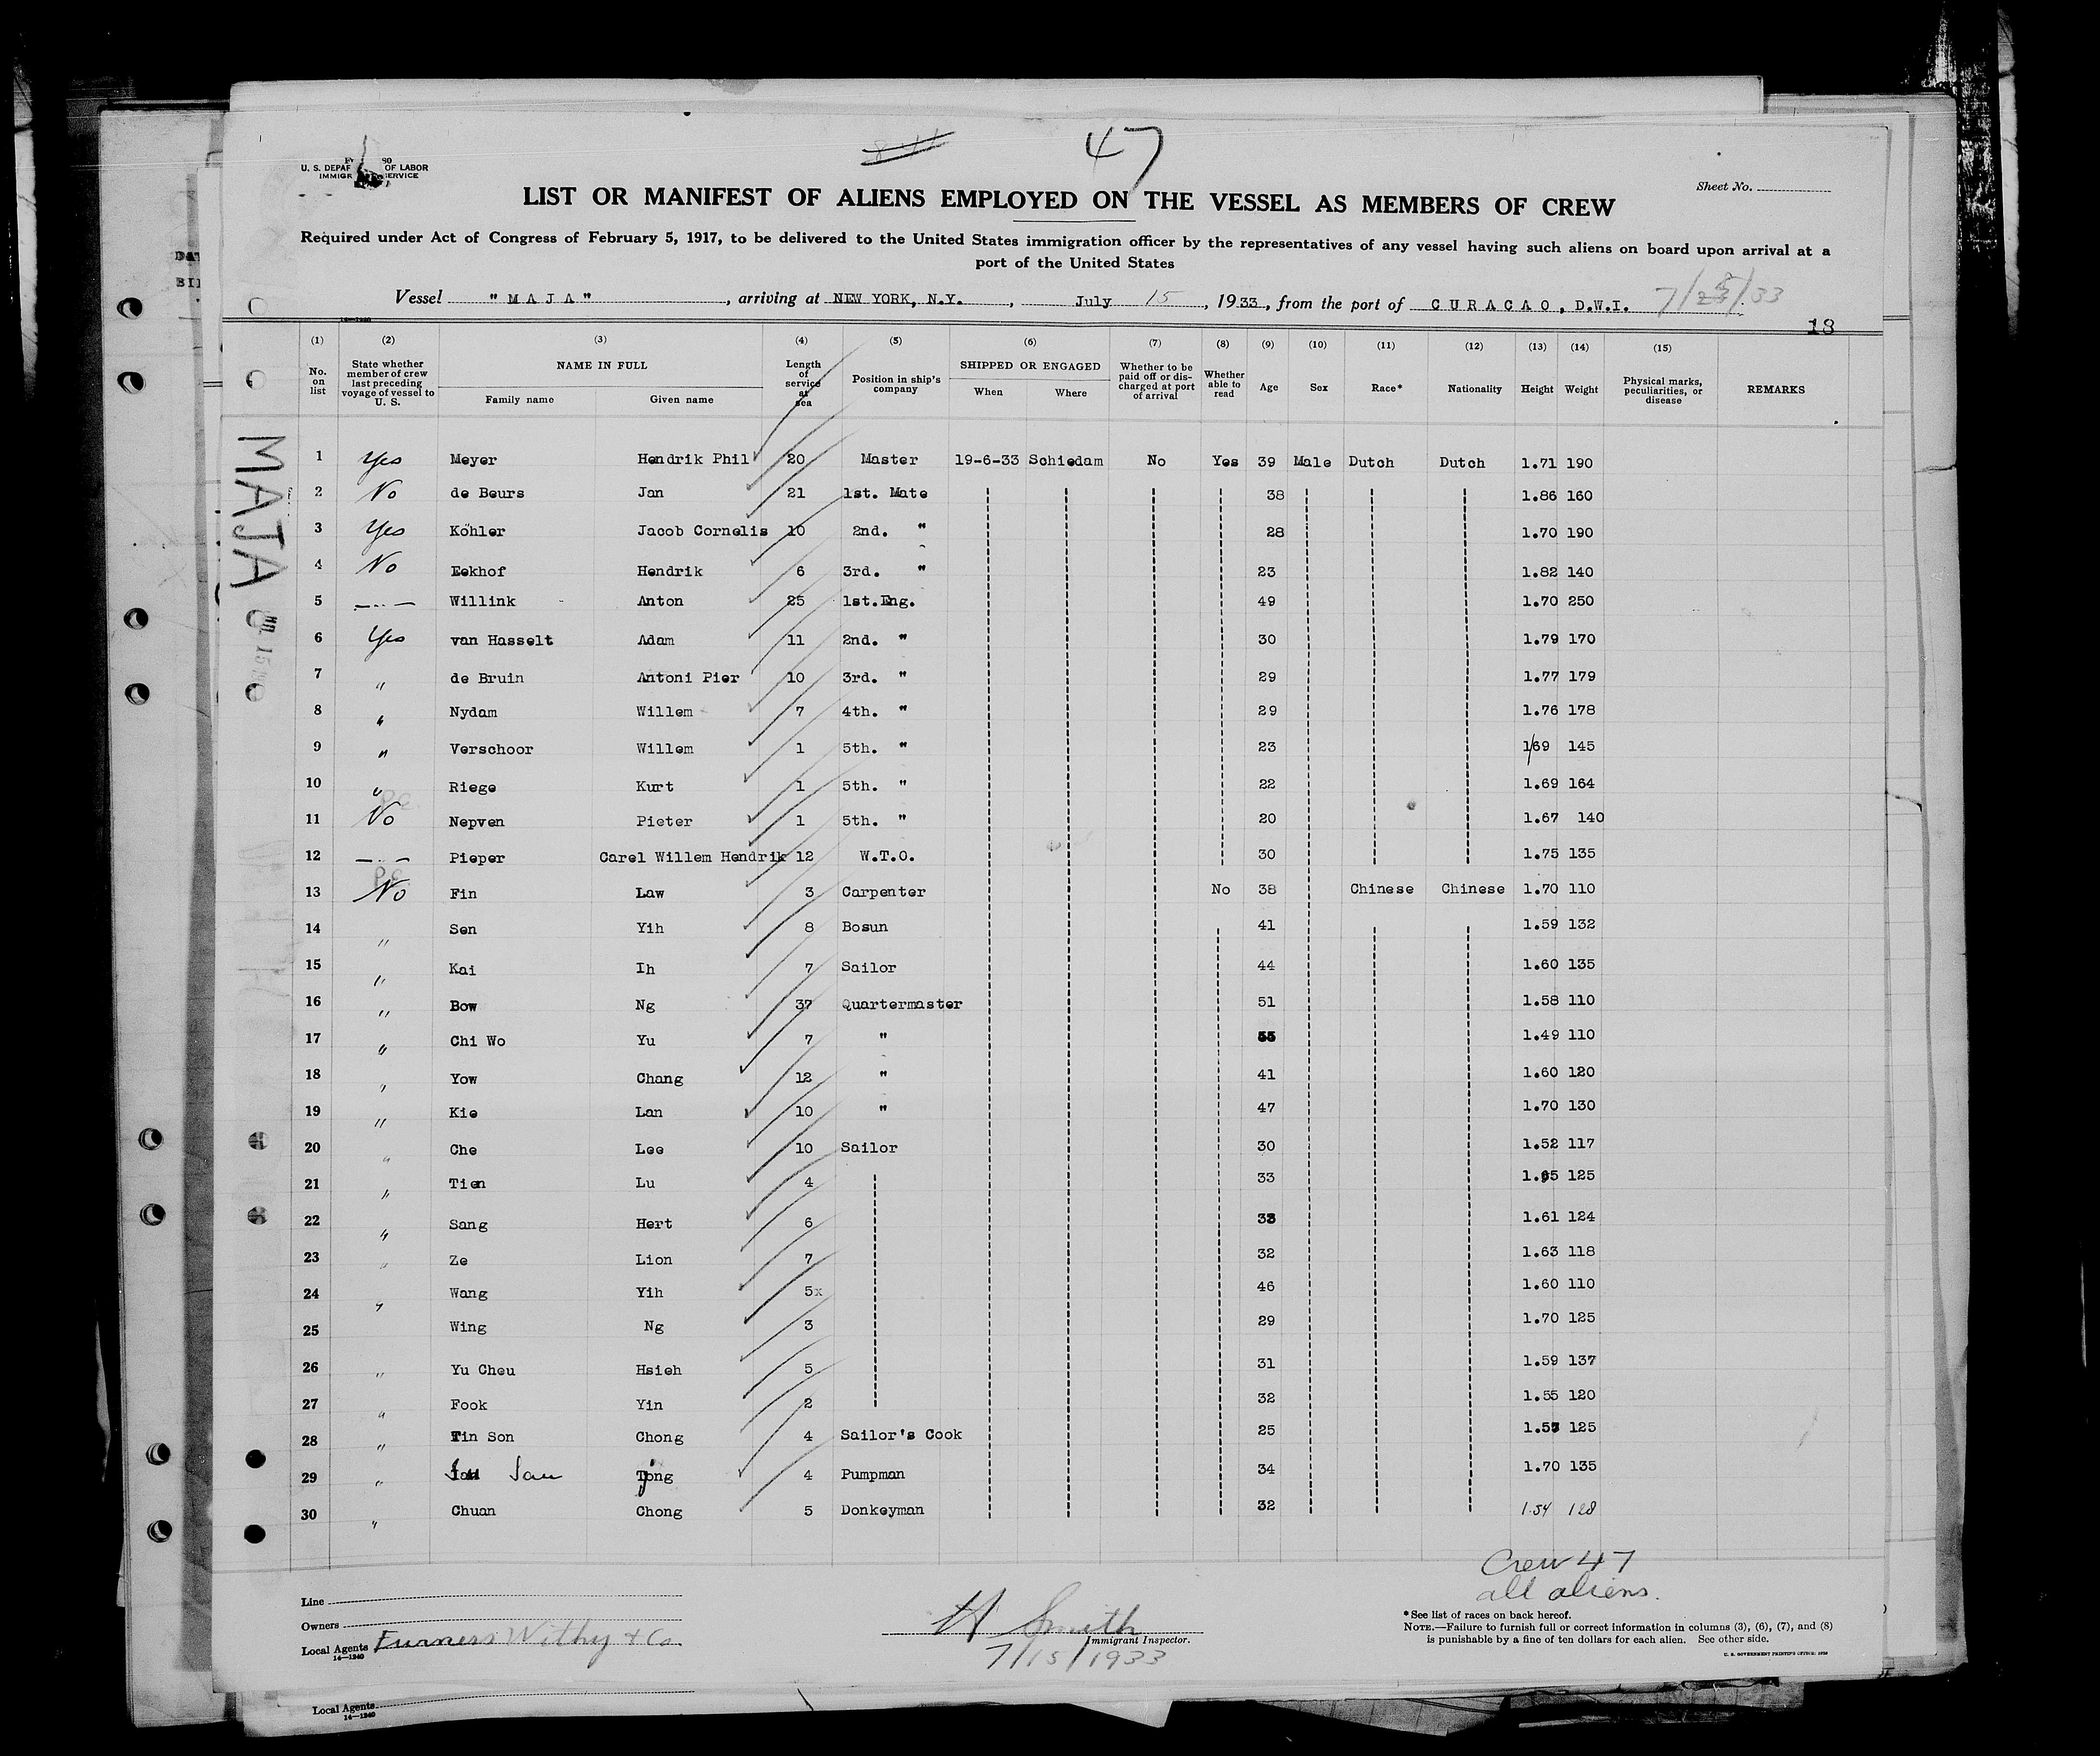 47
U. S. DEPAR OF LABOR
IMMIGR SERVICE
Sheet No.
LIST OR MANIFEST OF ALIENS EMPLOYED ON THE VESSEL AS MEMBERS OF CREW
Required under Act of Congress of February 5, 1917, to be delivered to the United States immigration officer by the representatives of any vessel having such aliens on board upon arrival at a
port of the United States
Vessel "MAJA", arriving at NEW YORK, N.Y., July 15, 1933, from the port of CURACAO, D.W.I.
18
(1) (2) (3) (4) (5) (6) (7) (8) (9) (10) (11) (12) (13) (14) (15)
No. on list State whether member of crew last preceding voyage of vessel to U. S. NAME IN FULL Family name Given name Length of service at sea Position in ship's company SHIPPED OR ENGAGED When Where Whether to be paid off or discharged at port of arrival Whether able to read Age Sex Race* Nationality Height Weight Physical marks, peculiarities, or disease REMARKS
MAJA
1 Yes Meyer Hendrik Phil 20 Master 19-6-33 Schiedam No Yes 39 Male Dutch Dutch 1.71 190
2 No de Beurs Jan 21 1st. Mate 38 1.86 160
3 Yes Köhler Jacob Cornelis 10 2nd. " 28 1.70 190
4 No Eekhof Hendrik 6 3rd. " 23 1.82 140
5 —..— Willink Anton 25 1st.Eng. 49 1.70 250
6 Yes van Hasselt Adam 11 2nd. " 30 1.79 170
7 " de Bruin Antoni Pier 10 3rd. " 29 1.77 179
8 " Nydam Willem 7 4th. " 29 1.76 178
9 " Verschoor Willem 1 5th. " 23 1/69 145
10 " Riege Kurt 1 5th. " 22 1.69 164
11 No Nepven Pieter 1 5th. " 20 1.67 140
12 —..— Pieper Carel Willem Hendrik 12 W.T.O. 30 1.75 135
13 No Fin Law 3 Carpenter No 38 Chinese Chinese 1.70 110
14 " Sen Yih 8 Bosun 41 1.59 132
15 " Kai Ih 7 Sailor 44 1.60 135
16 " Bow Ng 37 Quartermaster 51 1.58 110
17 " Chi Wo Yu 7 " 55 1.49 110
18 " Yow Chang 12 " 41 1.60 120
19 " Kie Lan 10 " 47 1.70 130
20 " Che Lee 10 Sailor 30 1.52 117
21 " Tien Lu 4 33 1.65 125
22 " Sang Hert 6 1.61 124
23 " Ze Lion 7 32 1.63 118
24 " Wang Yih 5x 46 1.60 110
25 Wing Ng 3 29 1.70 125
26 " Yu Cheu Hsieh 5 31 1.59 137
27 " Fook Yin 2 32 1.55 120
28 " Tin Son Chong 4 Sailor's Cook 25 125
29 " Tong 4 Pumpman 34 1.70 135
30 " Chuan Chong 5 Donkeyman 32 1.54 128
Crew 47
all aliens.
Line
Owners
Local Agents Furness Withy & Co.
14—1240
H Smith
Immigrant Inspector.
7/15/1933
*See list of races on back hereof.
NOTE.—Failure to furnish full or correct information in columns (3), (6), (7), and (8)
is punishable by a fine of ten dollars for each alien. See other side.
Local Agents
14—1240